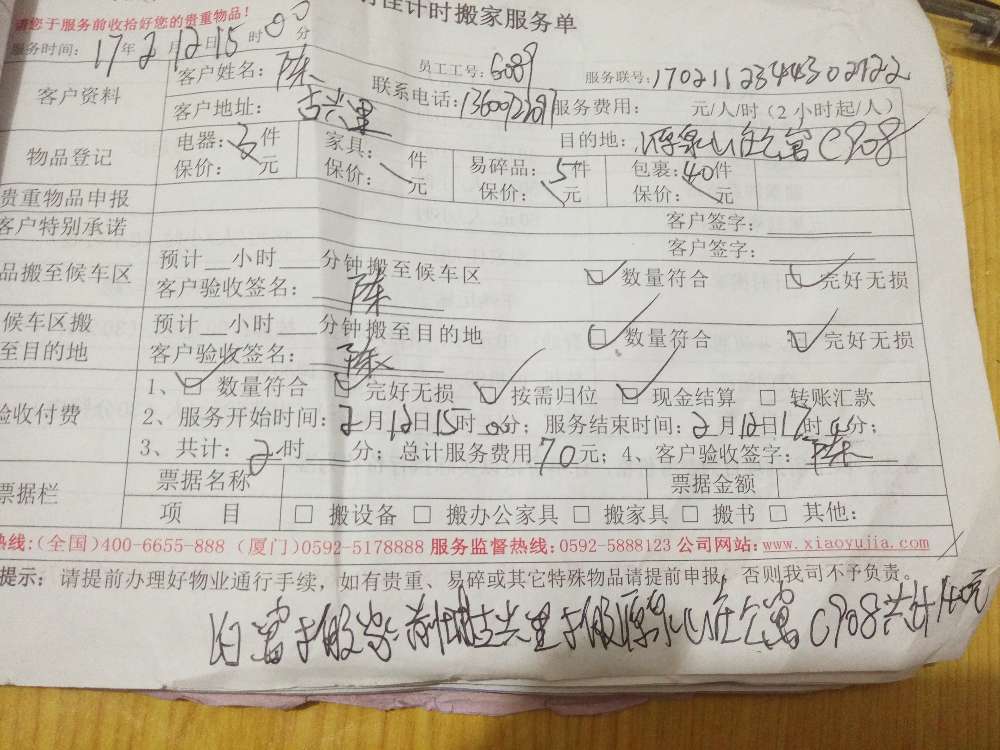 佳计时搬家服务单
请您于服务前收拾好您的贵重物品!
服务时间: 17年2月12日15时00分
员工工号: 6089 服务联号: 17021123444302122
客户资料 客户姓名: 陈 联系电话: 服务费用: 元/人/时(2小时起/人)
客户地址: 古兴里 目的地: 源泉山庄公寓C908
物品登记 电器: 3件 家具: 件 易碎品: 5件 包裹: 40件
保价: 元 保价: 元 保价: 元 保价: 元
贵重物品申报 客户签字:
客户特别承诺 客户签字:
品搬至候车区 预计 小时 分钟搬至候车区 □ 数量符合 □ 完好无损
客户验收签名: 陈
候车区搬至目的地 预计 小时 分钟搬至目的地 □ 数量符合 □ 完好无损
客户验收签名: 陈
验收付费 1、□ 数量符合 □ 完好无损 □ 按需归位 □ 现金结算 □ 转账汇款
2、服务开始时间: 2月12日15时00分; 服务结束时间: 2月12日17时00分;
3、共计: 2时 分; 总计服务费用70元; 4、客户验收签字: 陈
票据栏 票据名称 票据金额
项 目 □ 搬设备 □ 搬办公家具 □ 搬家具 □ 搬书 □ 其他:
热线:(全国)400-6655-888 (厦门)0592-5178888 服务监督热线:0592-5888123 公司网站:www.xiaoyujia.com
提示: 请提前办理好物业通行手续,如有贵重、易碎或其它特殊物品请提前申报,否则我司不予负责。
日富搬家 古兴里搬源泉山庄公寓C908共计140元